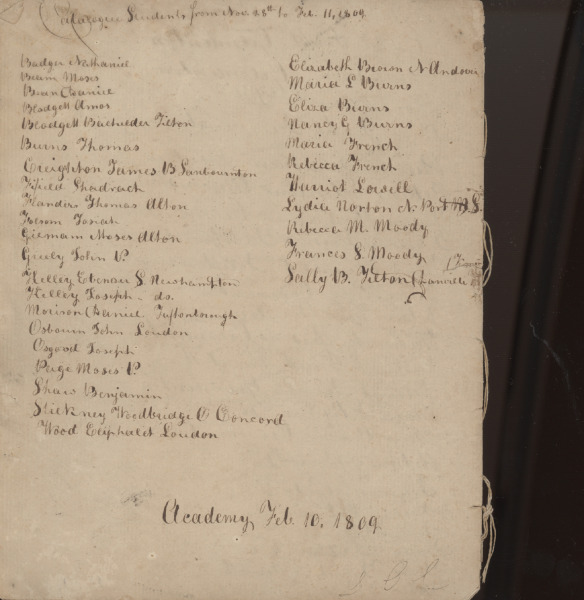 Catalogue Students from Nov. 28th to Feb. 11, 1809
Badger Nathaniel
Beam Moses
Bean Daniel
Blodgett Amos
Blodgett Bachelder Tilton
Burns Thomas
Creighton James B Sanbournton
Fifield Shadrach
Flanders Thomas Alton
Folsom Josiah
Gilmam Moses Alton
Greely John P
Kelley Ebenezer S. Newhampton
Kelley Joseph do.
Morison Daniel Tuftonborough
Osbourn John Loudon
Osgood Joseph
Page Moses P
Shaw Benjamin
Stickney Woodbridge O Concord
Wood Eliphalet Loudon
Elizabeth Brown N. Andover
Maria L Burns
Eliza Burns
Nancy G Burns
Maria French
Rebecca French
Harriot Lovell
Lydia Norton N. Port
Rebecca M. Moody
Frances S. Moody
Sally B. Tilton Danville
Academy Feb. 10, 1809